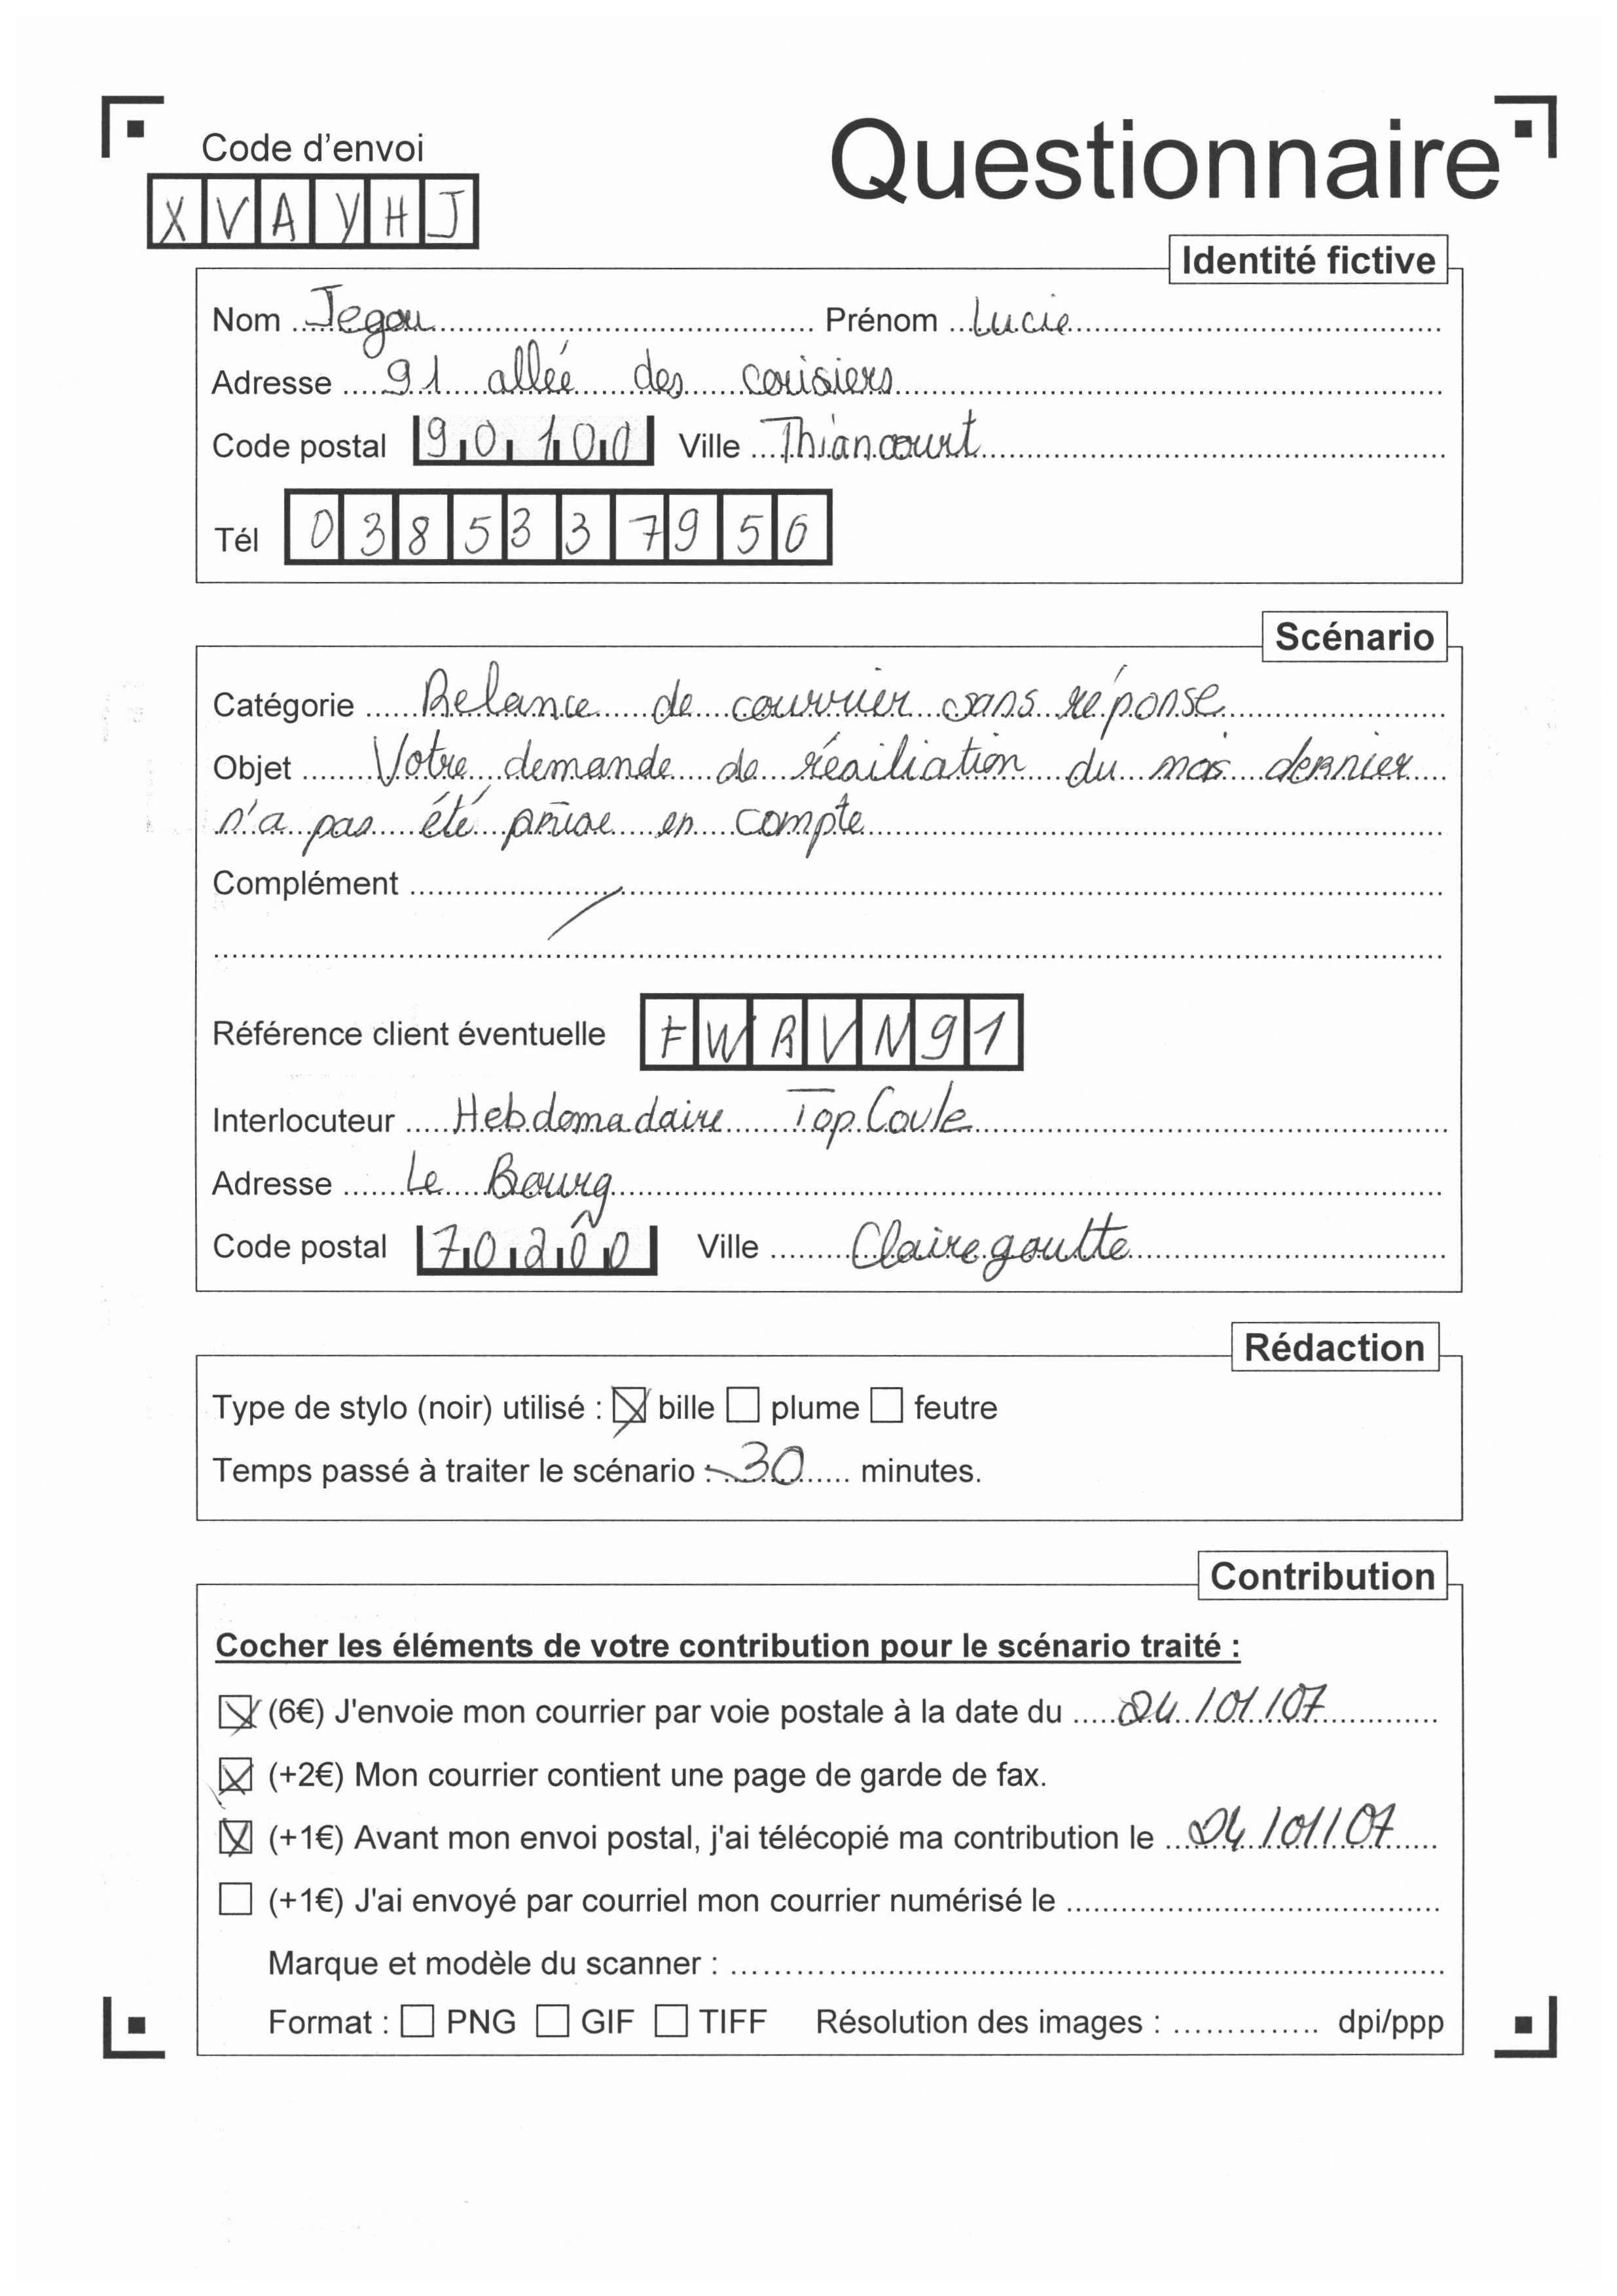 Code d'envoi
Questionnaire
XVAYHJ
Identité fictive
Nom Jegou Prénom Lucie
Adresse 91 allée des cerisiers
Code postal 90100 Ville Thiancourt
Tél 0385337956
Scénario
Catégorie Relance de courrier sans réponse
Objet Votre demande de résiliation du mois dernier
n'a pas été prise en compte
Complément /
Référence client éventuelle FWRVN91
Interlocuteur Hebdomadaire Top Coule
Adresse Le Bourg
Code postal 70200 Ville Clairegoutte
Rédaction
Type de stylo (noir) utilisé : ☒ bille ☐ plume ☐ feutre
Temps passé à traiter le scénario : 30 minutes.
Contribution
Cocher les éléments de votre contribution pour le scénario traité :
☒ (6€) J'envoie mon courrier par voie postale à la date du 24/01/07
☒ (+2€) Mon courrier contient une page de garde de fax.
☒ (+1€) Avant mon envoi postal, j'ai télécopié ma contribution le 24/01/07
☐ (+1€) J'ai envoyé par courriel mon courrier numérisé le
Marque et modèle du scanner :
Format : ☐ PNG ☐ GIF ☐ TIFF Résolution des images : dpi/ppp